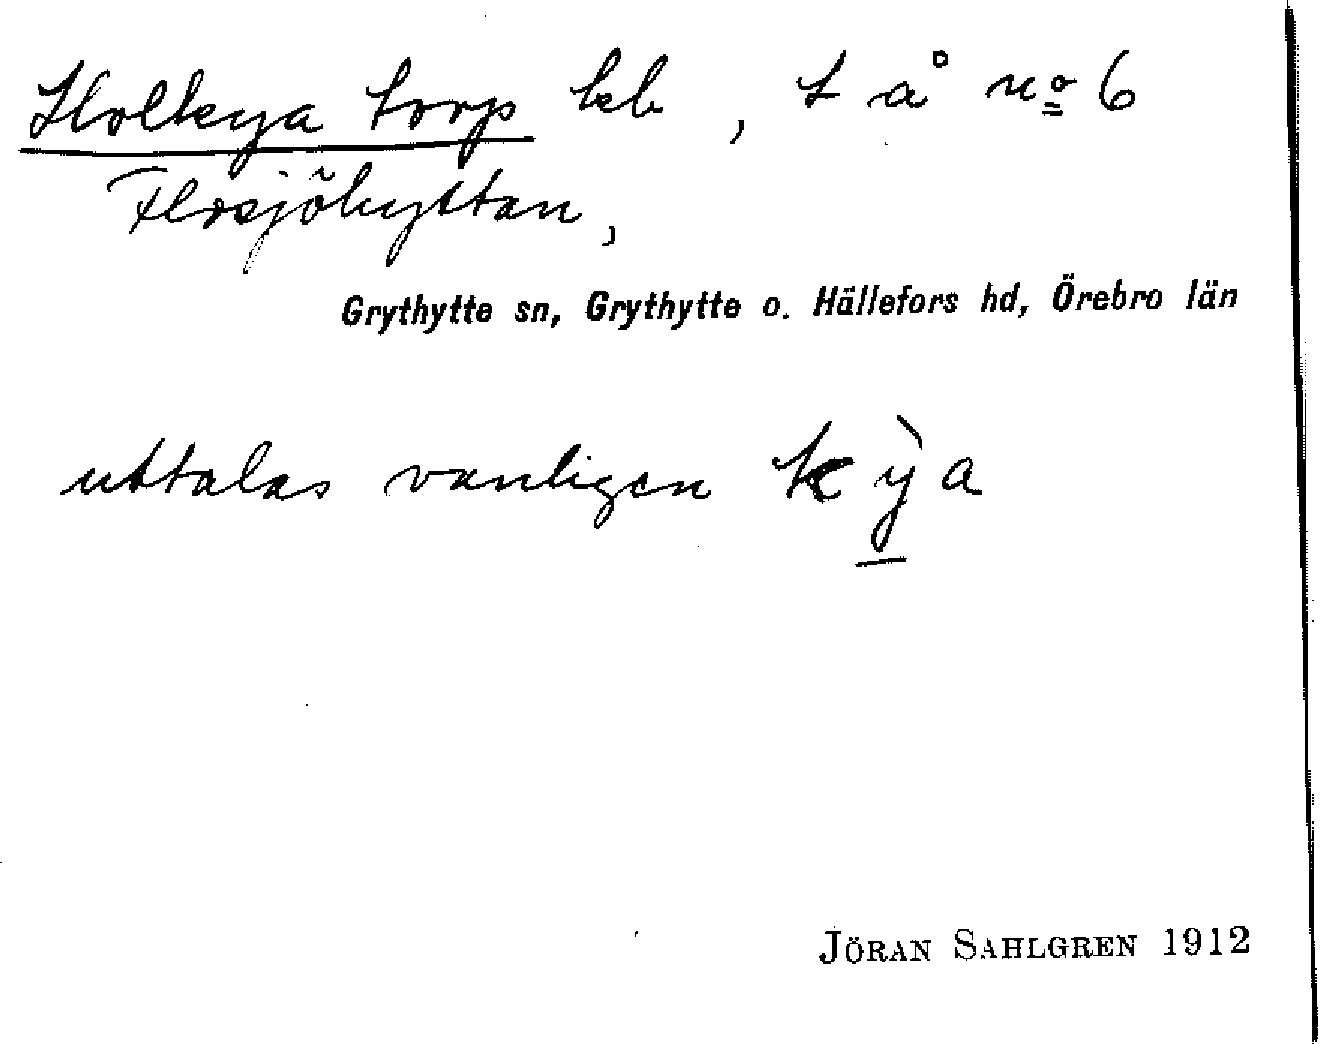 Holkya torp kb, t å nº 6
Flosjöhyttan,
Grythytte sn, Grythytte o. Hällefors hd, Örebro län
uttalas vanligen kỳa
JÖRAN SAHLGREN 1912